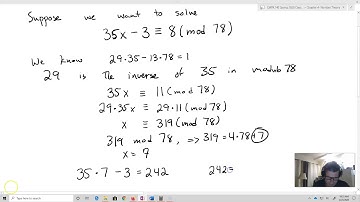 Suppose we want to solve
35x - 3 ≡ 8 (mod 78)
We know 29·35 - 13·78 = 1
29 is the inverse of 35 in modulo 78
35x ≡ 11 (mod 78)
29·35x ≡ 29·11 (mod 78)
x ≡ 319 (mod 78)
319 mod 78, => 319 = 4·78+7
x = 7
35·7 - 3 = 242 242≡